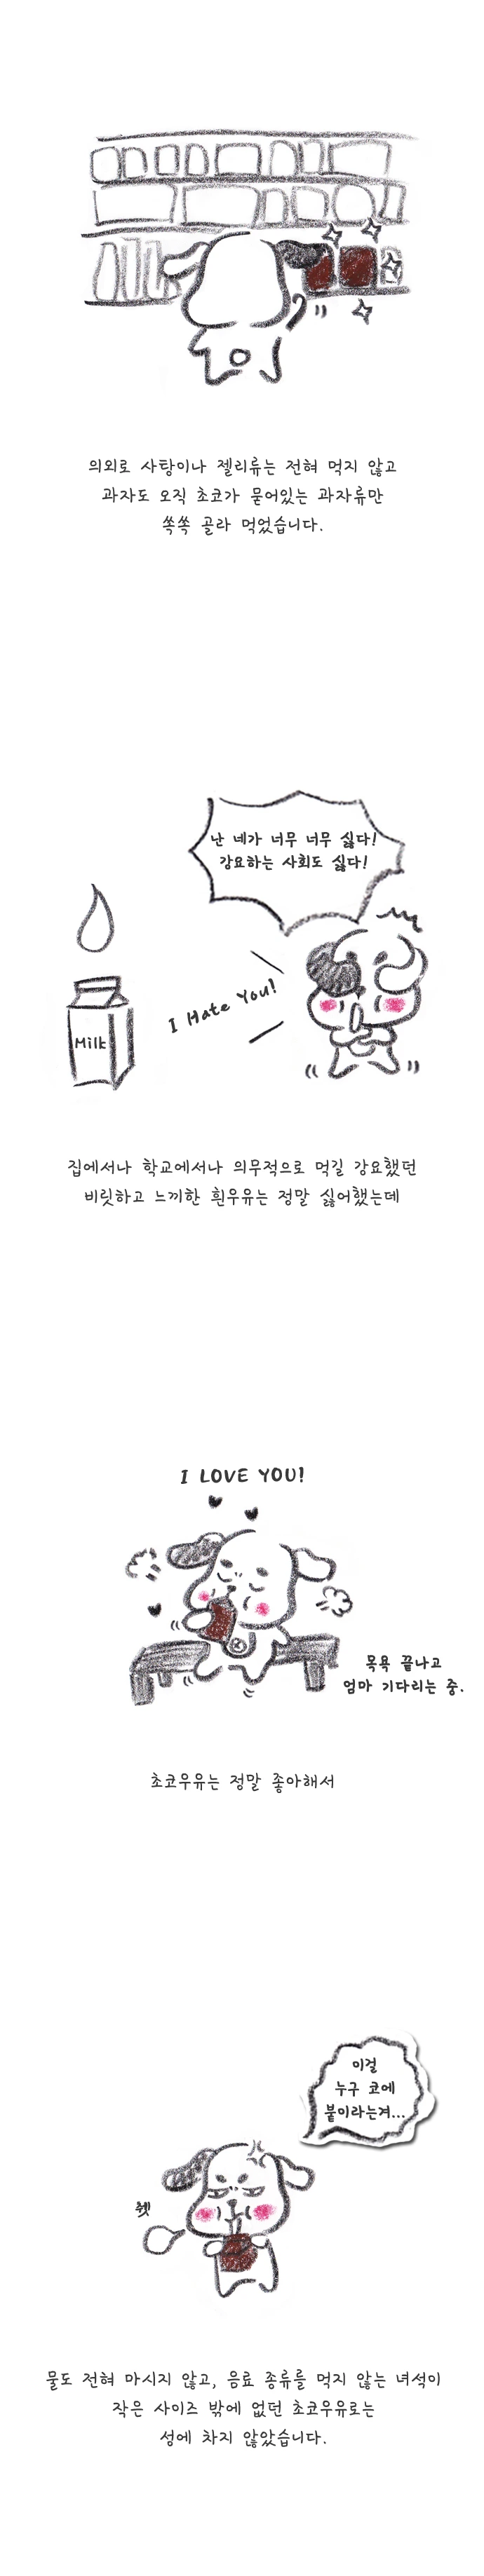 의외로 사탕이나 젤리류는 전혀 먹지 않고
과자도 오직 초코가 묻어있는 과자류만
쏙쏙 골라 먹었습니다.
난 네가 너무 너무 싫다!
강요하는 사회도 싫다!
I Hate You!
Milk
집에서나 학교에서나 의무적으로 먹길 강요했던
비릿하고 느끼한 흰우유는 정말 싫어했는데
I LOVE YOU!
목욕 끝나고
엄마 기다리는 중.
초코우유는 정말 좋아해서
이걸
누구 코에
붙이라는겨...
쳇
물도 전혀 마시지 않고, 음료 종류를 먹지 않는 녀석이
작은 사이즈 밖에 없던 초코우유로는
성에 차지 않았습니다.